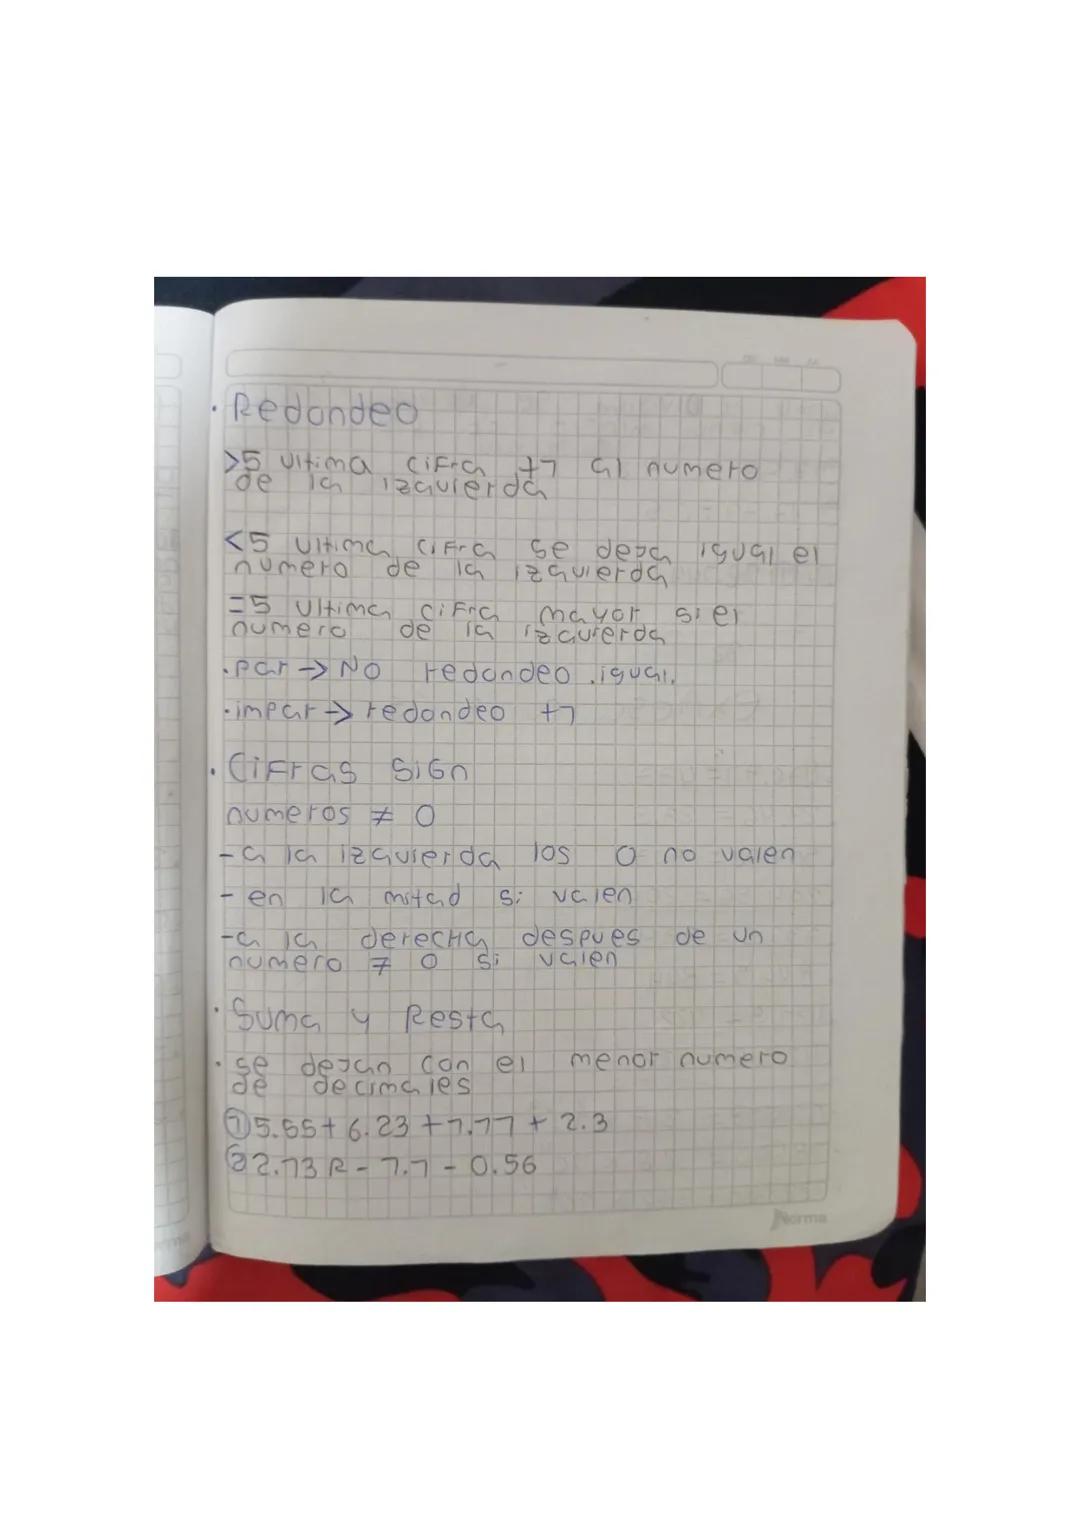 · Redondeo
>5 ultima cifra +1 al numero
de la izquierda
<5 ultima cifra se deja igual el
numero de la izquierda
=5 ultima cifra mayor si el
numero de la izquierda
· par → No redondeo . igual.
· impar → redondeo +1
· Cifras Sign
numeros ≠ 0
- a la izquierda los 0 no valen
- en la mitad si valen
- a la derecha despues de un
numero ≠ 0 si valen
· Suma y Resta
· se dejan con el menor numero
de decimales
① 5.55 + 6.23 + 7.77 + 2.3
② 2.13 - 1.1 - 0.56
Norma